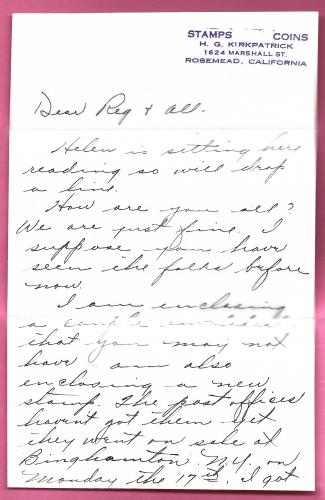 STAMPS COINS
H. G. KIRKPATRICK
1624 MARSHALL ST.
ROSEMEAD, CALIFORNIA
Dear Reg & All.
Helen is sitting here
reading so will drop
a line.
How are you all?
We are just fine. I
suppose you have
seen the folks before
now.
I am enclosing
a couple
that you may not
have am also
enclosing a new
stamp. The post offices
havent got them yet
they went on sale at
Binghamton, N.Y. on
Monday the 17th. I got